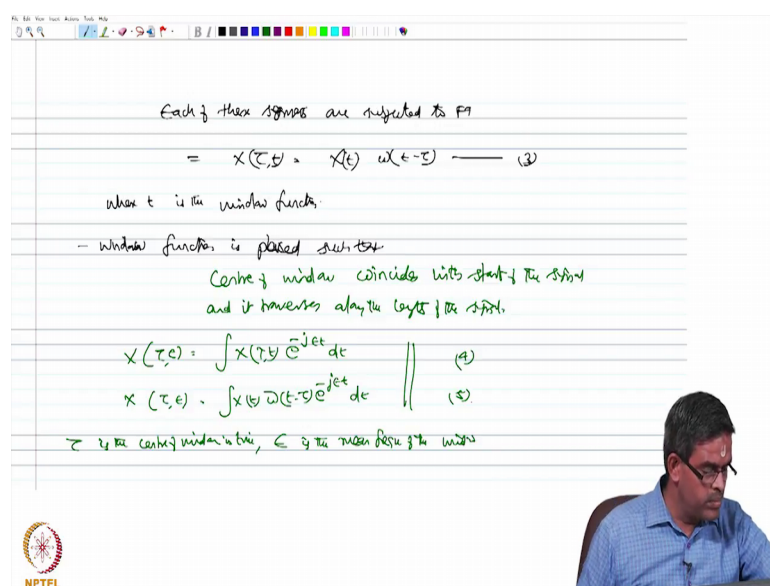 File Edit View Insert Actions Tools Help
Each of these are subjected to FT
= X(τ,t) = X(t) ω(t-τ) —— (3)
where t is the window function.
- Window function is placed such that
Centre of window coincides with start of the signal
and it traverses along the length of the signal.
X(τ,ϵ) = ∫x(τ,t) e^{-jϵt} dt (4)
X(τ,ϵ) = ∫x(t) ω(t-τ) e^{-jϵt} dt (5)
τ is the centre of window in time, ϵ is the mean freq of the
NPTEL